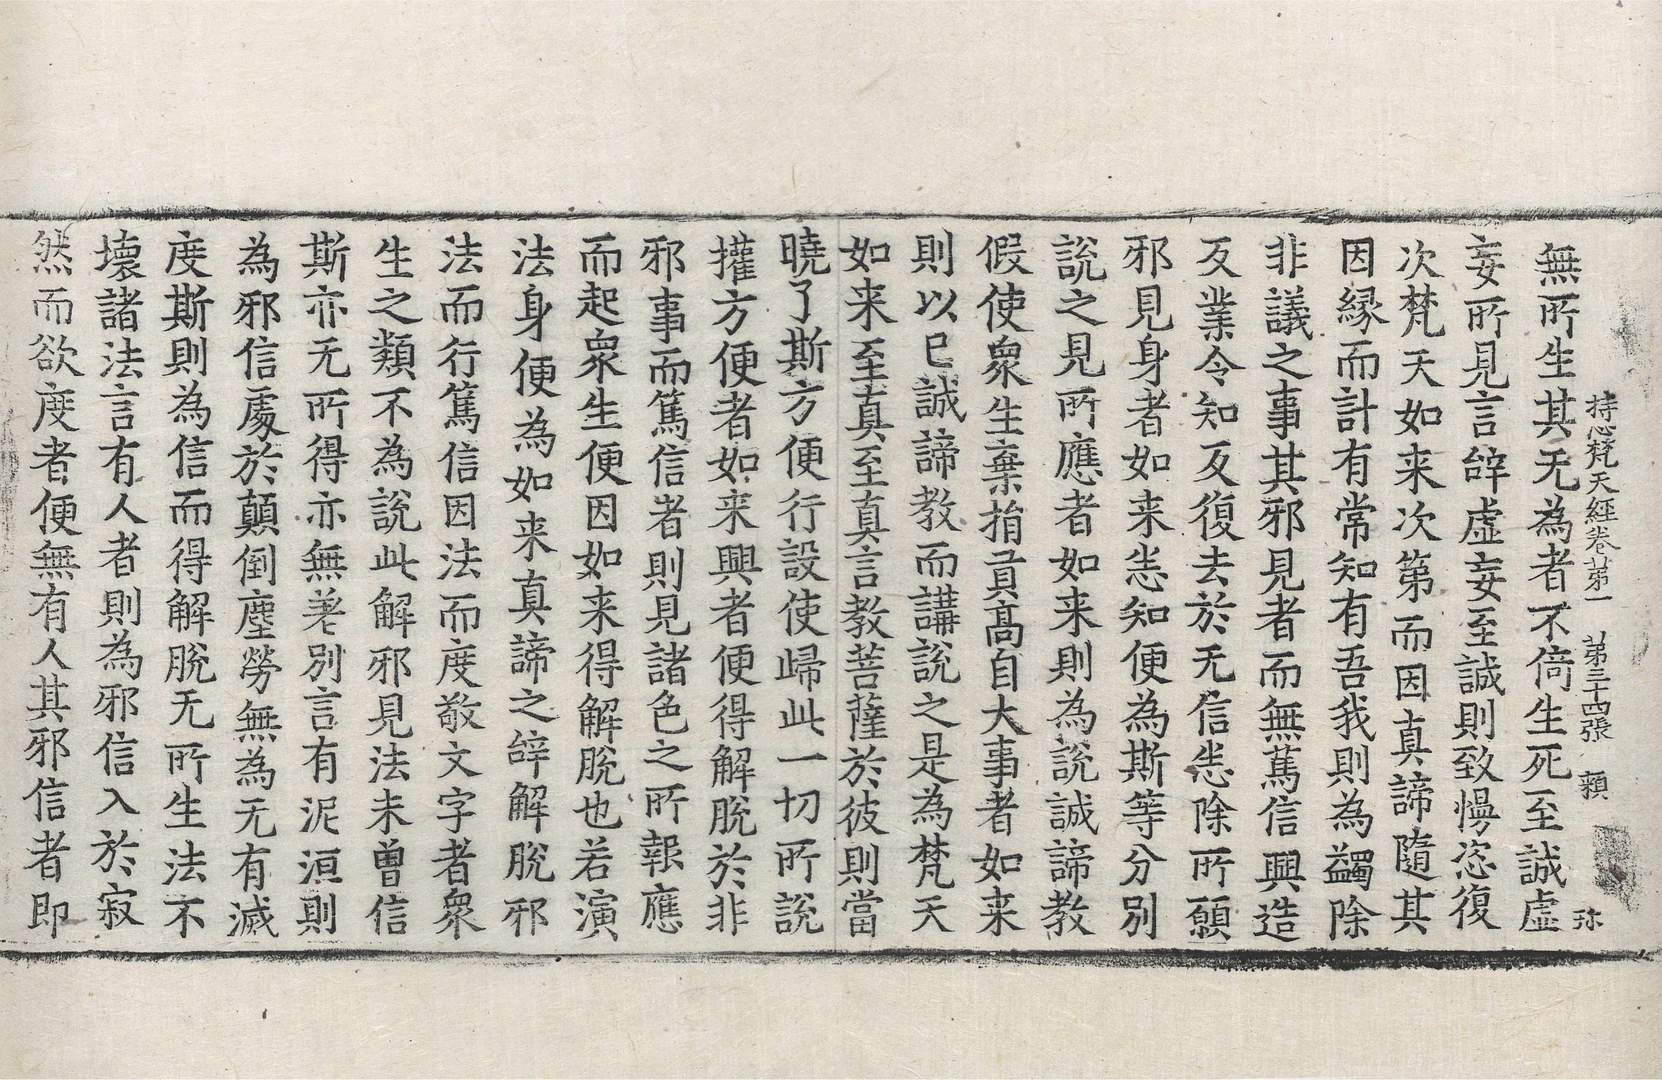 持心梵天經卷第一　第三十四張　賴　㻅
無所生其无為者不倚生死至誠虛
妄所見言辝虛妄至誠則致慢恣復
次梵天如来次第而因真諦隨其
因縁而計有常知有吾我則為蠲除
非議之事其邪見者而無篤信興造
反業令知反復去於无信恙除所願
邪見身者如来恙知便為斯等分別
說之見所應者如来則為說誠諦教
假使衆生棄捐貢髙自大事者如来
則以已誠諦教而講說之是為梵天
如来至真至真言教菩薩於彼則當
曉了斯方便行設使歸此一切所說
攉方便者如来興者便得解脫於非
邪事而篤信者則見諸色之所報應
而起衆生便因如来得解脫也若演
法身便為如来真諦之辝解脫邪
法而行篤信因法而度敬文字者衆
生之類不為說此解邪見法未曾信
斯亦无所得亦無差別言有泥洹則
為邪信處於顛倒塵勞無為无有滅
度斯則為信而得解脫无所生法不
壞諸法言有人者則為邪信入於寂
然而欲度者便無有人其邪信者即